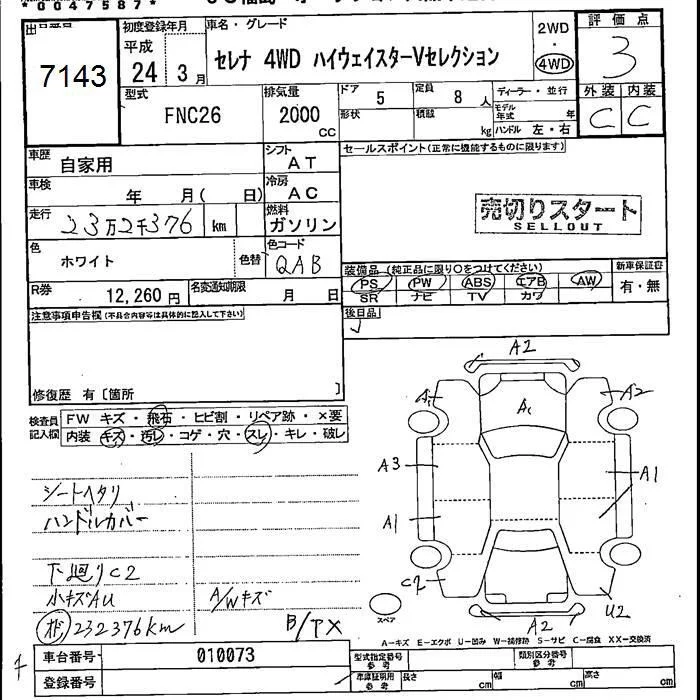 *0047587*
7143
初度登録年月
平成
24年 3月
車名・グレード
セレナ 4WD ハイウェイスターVセレクション
2WD
・
4WD
評価点
3
外装 内装
C C
型式
FNC26
排気量
2000
cc
ドア
5
定員
8人
形状
積載
kg
ディーラー・並行
モデル年式 年
ハンドル 左・右
車歴
自家用
シフト
AT
車検
年 月( 日)
冷房
AC
走行
23万2千376 km
燃料
ガソリン
色
ホワイト
色替
色コード
QAB
R券
12,260円
名変通知期限
月 日
セールスポイント(正常に機能するものに限ります)
売切りスタート
SELLOUT
装備品(純正品に限り○をつけてください)
PS PW ABS エアB AW
SR ナビ TV カワ
新車保証書
有・無
後日品
注意事項申告欄(不具合内容等は具体的に記入して下さい)
修復歴 有〔箇所 〕
検査員
記入欄
FW キズ・飛石・ヒビ割・リペア跡・×要
内装 キズ・汚レ・コゲ・穴・スレ・キレ・破レ
シートヘタリ
ハンドルカバー
下廻りC2
小キズAU
A/Wキズ
232376km
B/PX
A2
A1
A2
A1
A3
A1
A1
C2
U2
A2
スペア
A-キズ E-エクボ U-凹み W-補修跡 S-サビ C-腐食 XX-交換済
車台番号
010073
登録番号
型式指定番号
参考
類別区分番号
参考
車庫証明用
参考
長さ cm
幅 cm
高さ cm